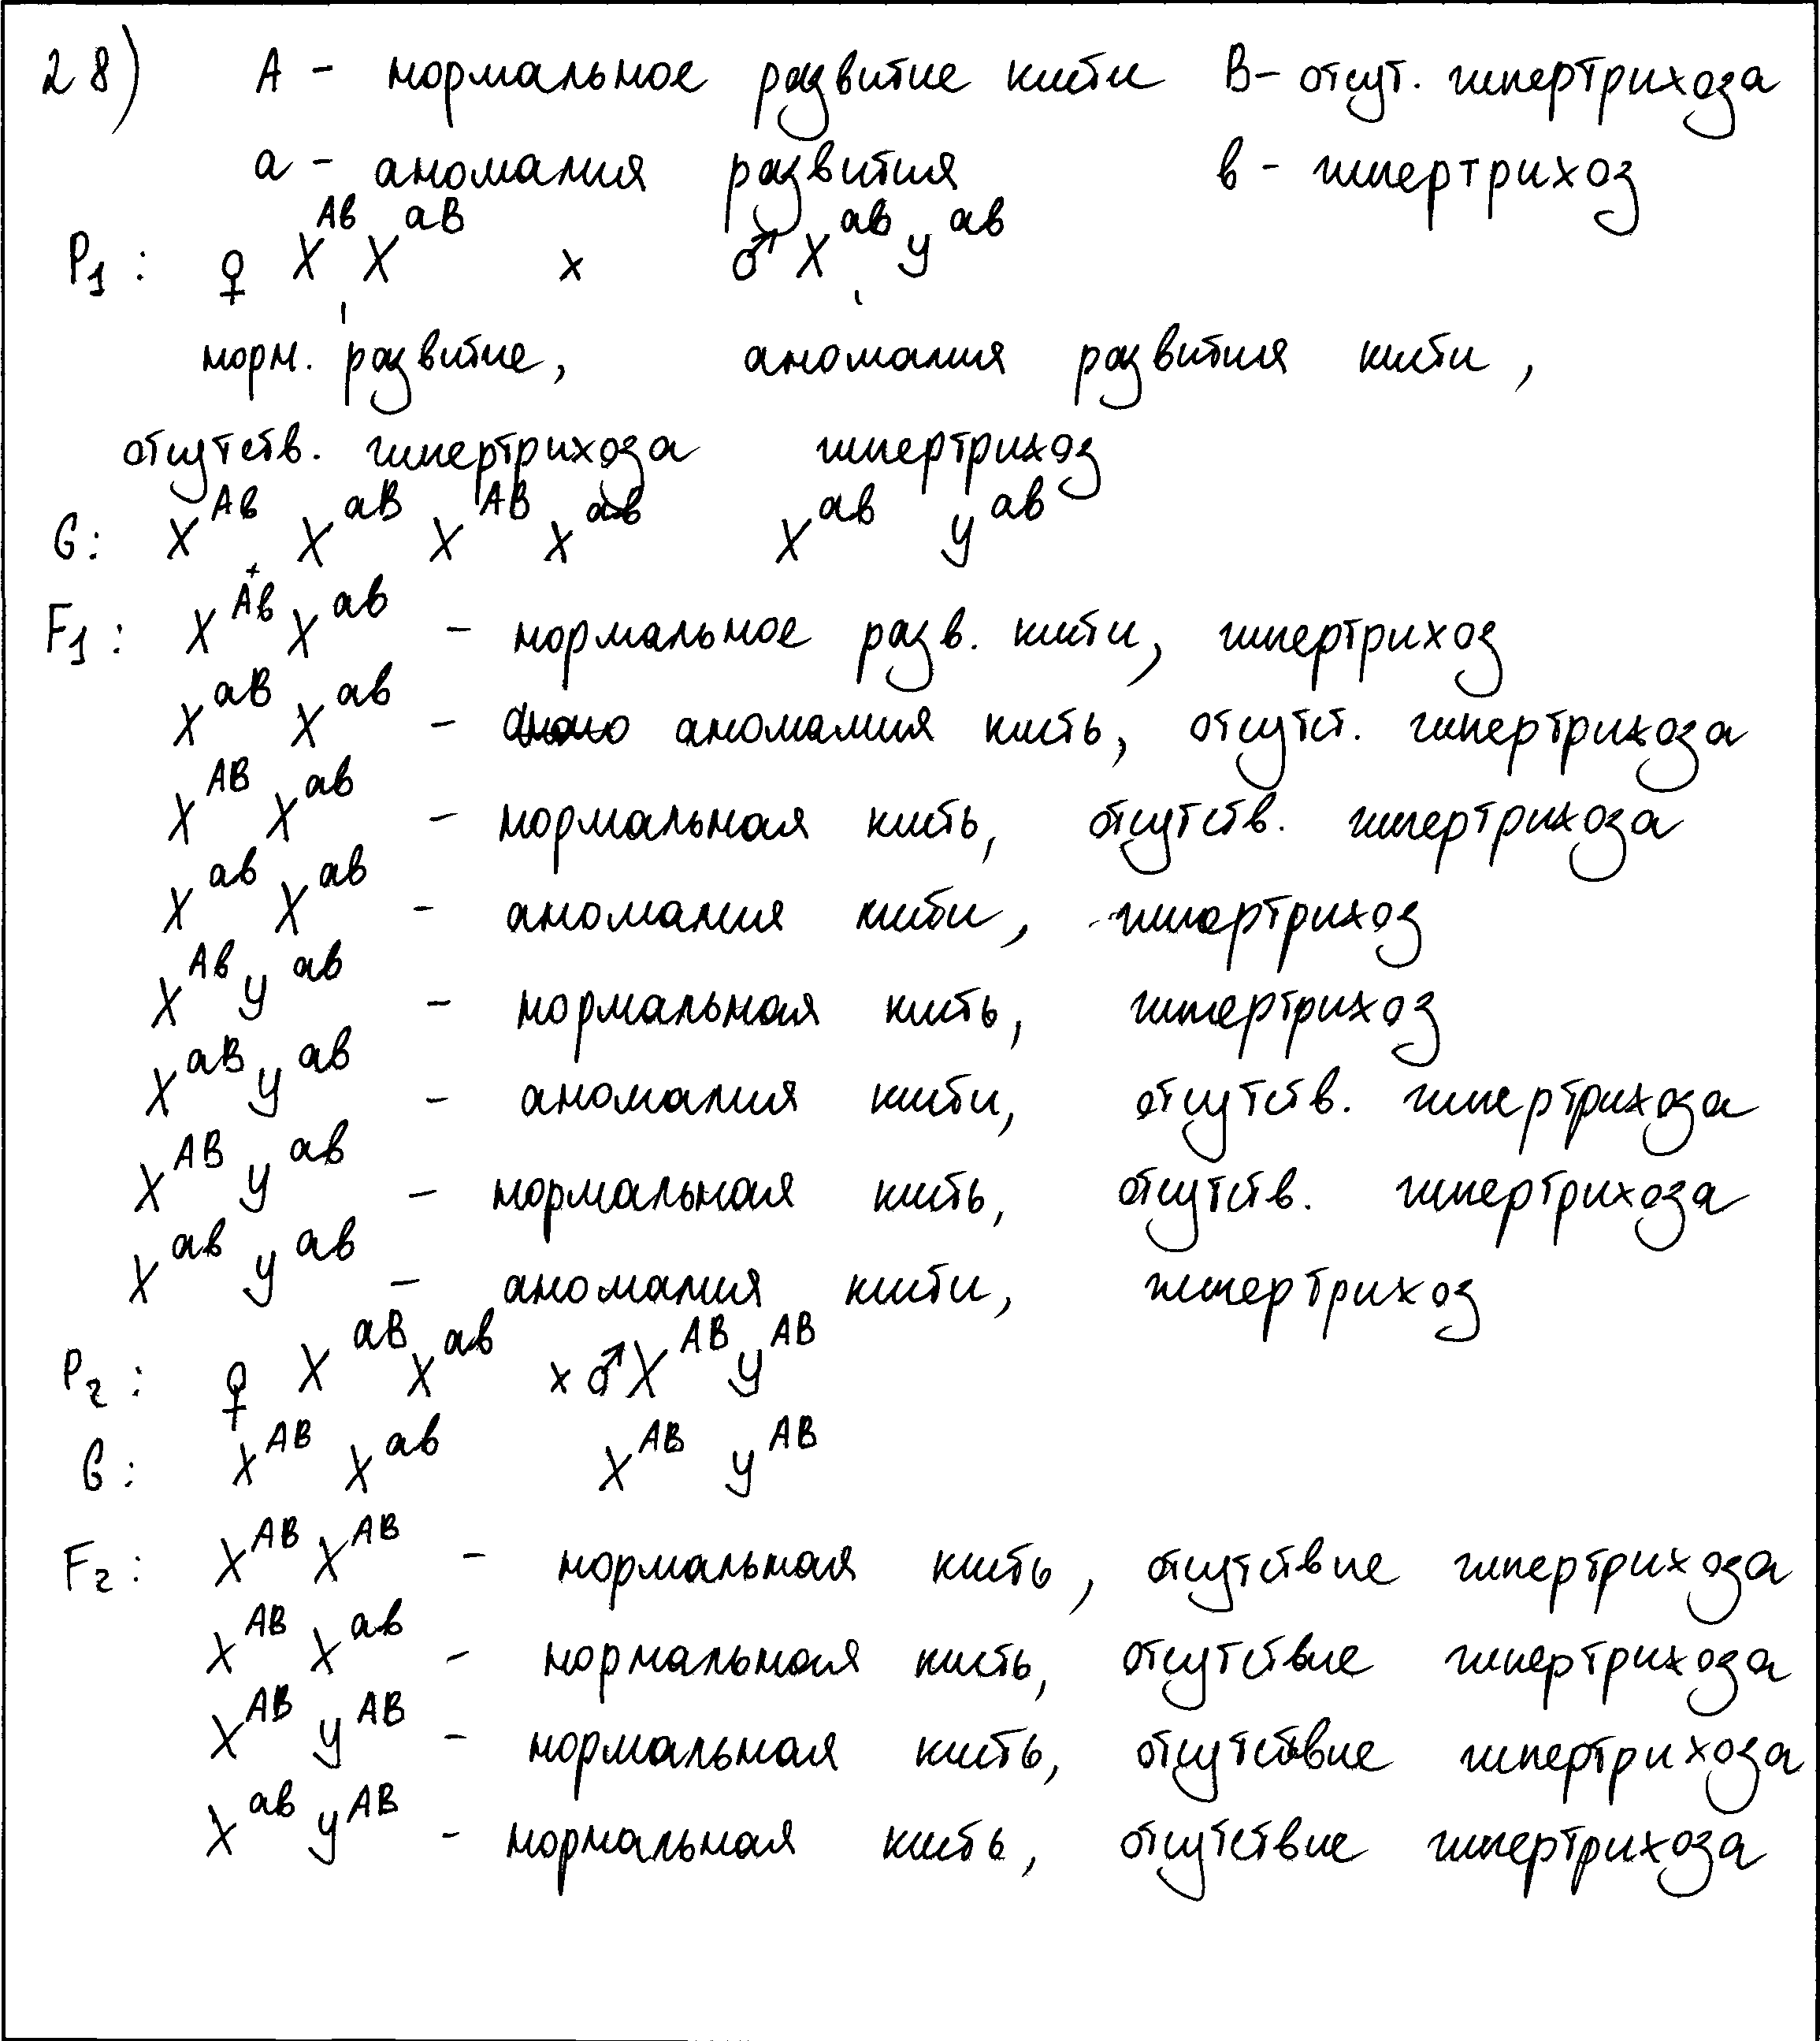 28) А - нормальное развитие кисти В- отсут. гипертрихоза
а - аномалия развития в - гипертрихоз
P₁ : ♀ X^Aв X^aB x ♂ X^aв y^aв
норм. развитие, аномалия развития кисти,
отсутств. гипертрихоза гипертрихоз
G: X^Aв X^aB X^AB X^aв X^aв y^aв
F₁ : X^Aв X^aв - нормальное разв. кисти, гипертрихоз
X^aB X^aв - аномалия кисть, отсутст. гипертрихоза
X^AB X^aв - нормальная кисть, отсутств. гипертрихоза
X^aв X^aв - аномалия кисти, гипертрихоз
X^Aв y^aв - нормальная кисть, гипертрихоз
X^aB y^aв - аномалия кисти, отсутств. гипертрихоза
X^AB y^aв - нормальная кисть, отсутств. гипертрихоза
X^aв y^aв - аномалия кисти, гипертрихоз
P₂ : ♀ X^aB X^aв x ♂ X^AB y^AB
G : X^AB X^aв X^AB y^AB
F₂ : X^AB X^AB - нормальная кисть, отсутствие гипертрихоза
X^AB X^aв - нормальная кисть, отсутствие гипертрихоза
X^AB y^AB - нормальная кисть, отсутствие гипертрихоза
X^aв y^AB - нормальная кисть, отсутствие гипертрихоза